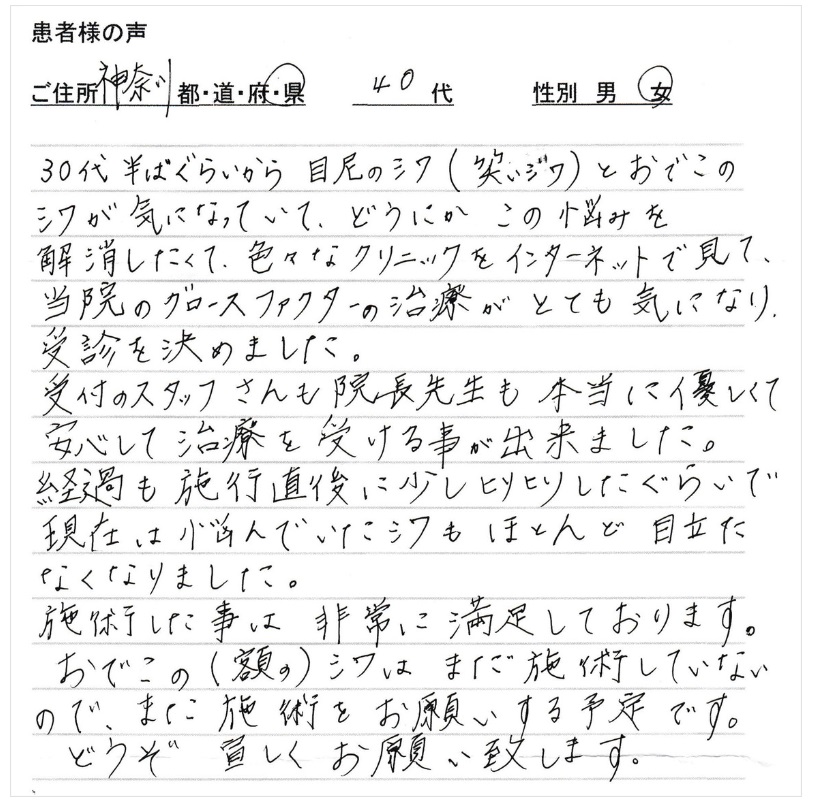 患者様の声
ご住所 神奈川 都・道・府・県 40 代 性別 男 女
30代半ばぐらいから目尻のシワ(笑いジワ)とおでこの
シワが気になっていて、どうにかこの悩みを
解消したくて、色々なクリニックをインターネットで見て、
当院のグロースファクターの治療がとても気になり、
受診を決めました。
受付のスタッフさんも院長先生も本当に優しくて
安心して治療を受ける事が出来ました。
経過も施行直後に少しヒリヒリしたぐらいで
現在は悩んでいたシワもほとんど目立た
なくなりました。
施術した事は非常に満足しております。
おでこの(額の)シワはまだ施術していない
ので、また施術をお願いする予定です。
どうぞ宜しくお願い致します。